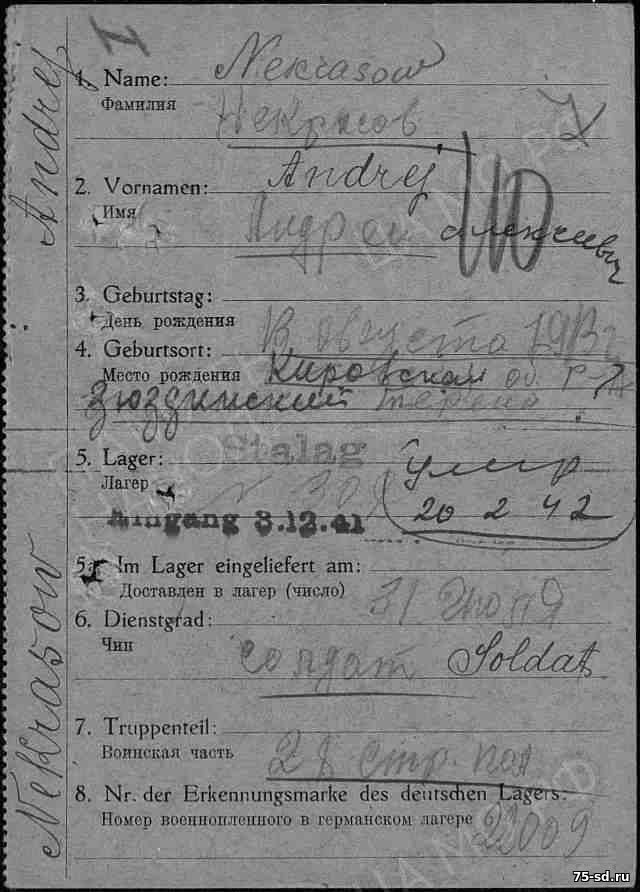 Nekrasow Andrej
I
1. Name: Nekrasow
Фамилия Некрасов
2. Vornamen: Andrej
Имя Андрей Алексеевич
3. Geburtstag:
День рождения августа 1913 г
4. Geburtsort:
Место рождения Кировская об.
Зюздинский
5. Lager: Stalag
Лагерь умер
20 2 42
Eingang 3.12.41
5. Im Lager eingeliefert am:
Доставлен в лагерь (число) 31 Июля
6. Dienstgrad:
Чин солдат Soldat
7. Truppenteil:
Воинская часть 28 стр. пол
8. Nr. der Erkennungsmarke des deutschen Lagers:
Номер военнопленного в германском лагере
75-sd.ru